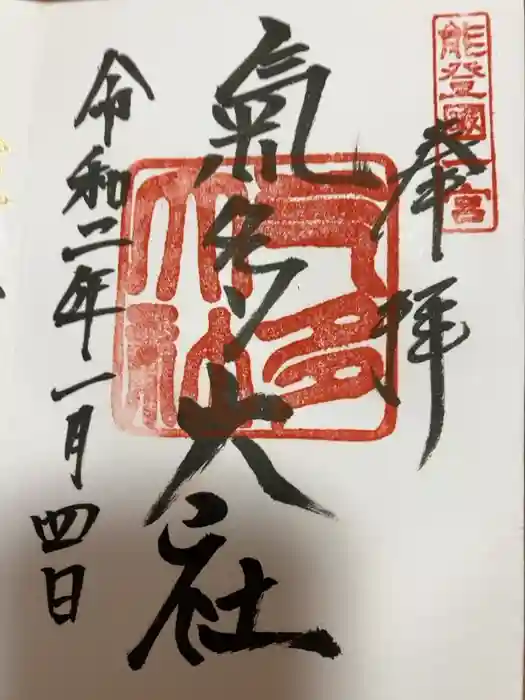 能登國一宮
奉拝
氣多大社
氣多大社
令和二年一月四日